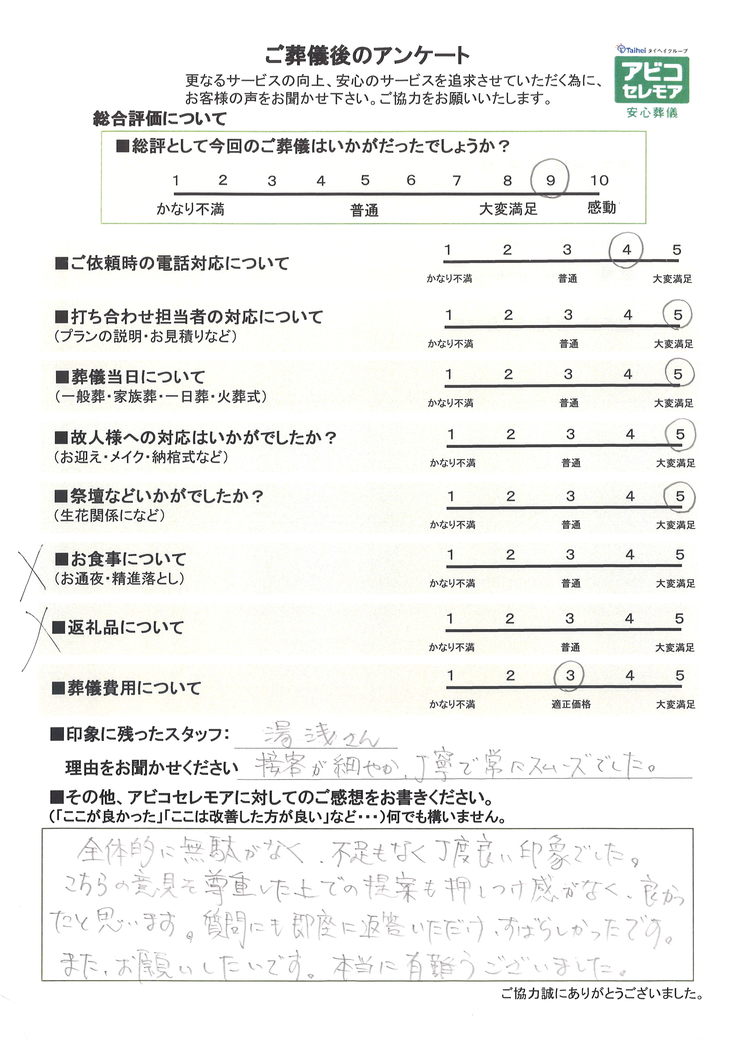 ご葬儀後のアンケート
Taihei タイヘイグループ
アビコ
セレモア
安心葬儀
更なるサービスの向上、安心のサービスを追求させていただく為に、
お客様の声をお聞かせ下さい。ご協力をお願いいたします。
総合評価について
■総評として今回のご葬儀はいかがだったでしょうか？
1 2 3 4 5 6 7 8 9 10
かなり不満 普通 大変満足 感動
■ご依頼時の電話対応について 1 2 3 4 5
かなり不満 普通 大変満足
■打ち合わせ担当者の対応について 1 2 3 4 5
(プランの説明・お見積りなど) かなり不満 普通 大変満足
■葬儀当日について 1 2 3 4 5
(一般葬・家族葬・一日葬・火葬式) かなり不満 普通 大変満足
■故人様への対応はいかがでしたか？ 1 2 3 4 5
(お迎え・メイク・納棺式など) かなり不満 普通 大変満足
■祭壇などいかがでしたか？ 1 2 3 4 5
(生花関係になど) かなり不満 普通 大変満足
■お食事について 1 2 3 4 5
(お通夜・精進落とし) かなり不満 普通 大変満足
■返礼品について 1 2 3 4 5
かなり不満 普通 大変満足
■葬儀費用について 1 2 3 4 5
かなり不満 適正価格 大変満足
■印象に残ったスタッフ： 湯浅さん
理由をお聞かせください 接客が細やか、丁寧で常にスムーズでした。
■その他、アビコセレモアに対してのご感想をお書きください。
(「ここが良かった」「ここは改善した方が良い」など・・・)何でも構いません。
全体的に無駄がなく、不足もなく丁度良い印象でした。
こちらの意見を尊重した上での提案も押しつけ感がなく、良かっ
たと思います。質問にも即座に返答いただけ、すばらしかったです。
また、お願いしたいです。本当に有難うございました。
ご協力誠にありがとうございました。